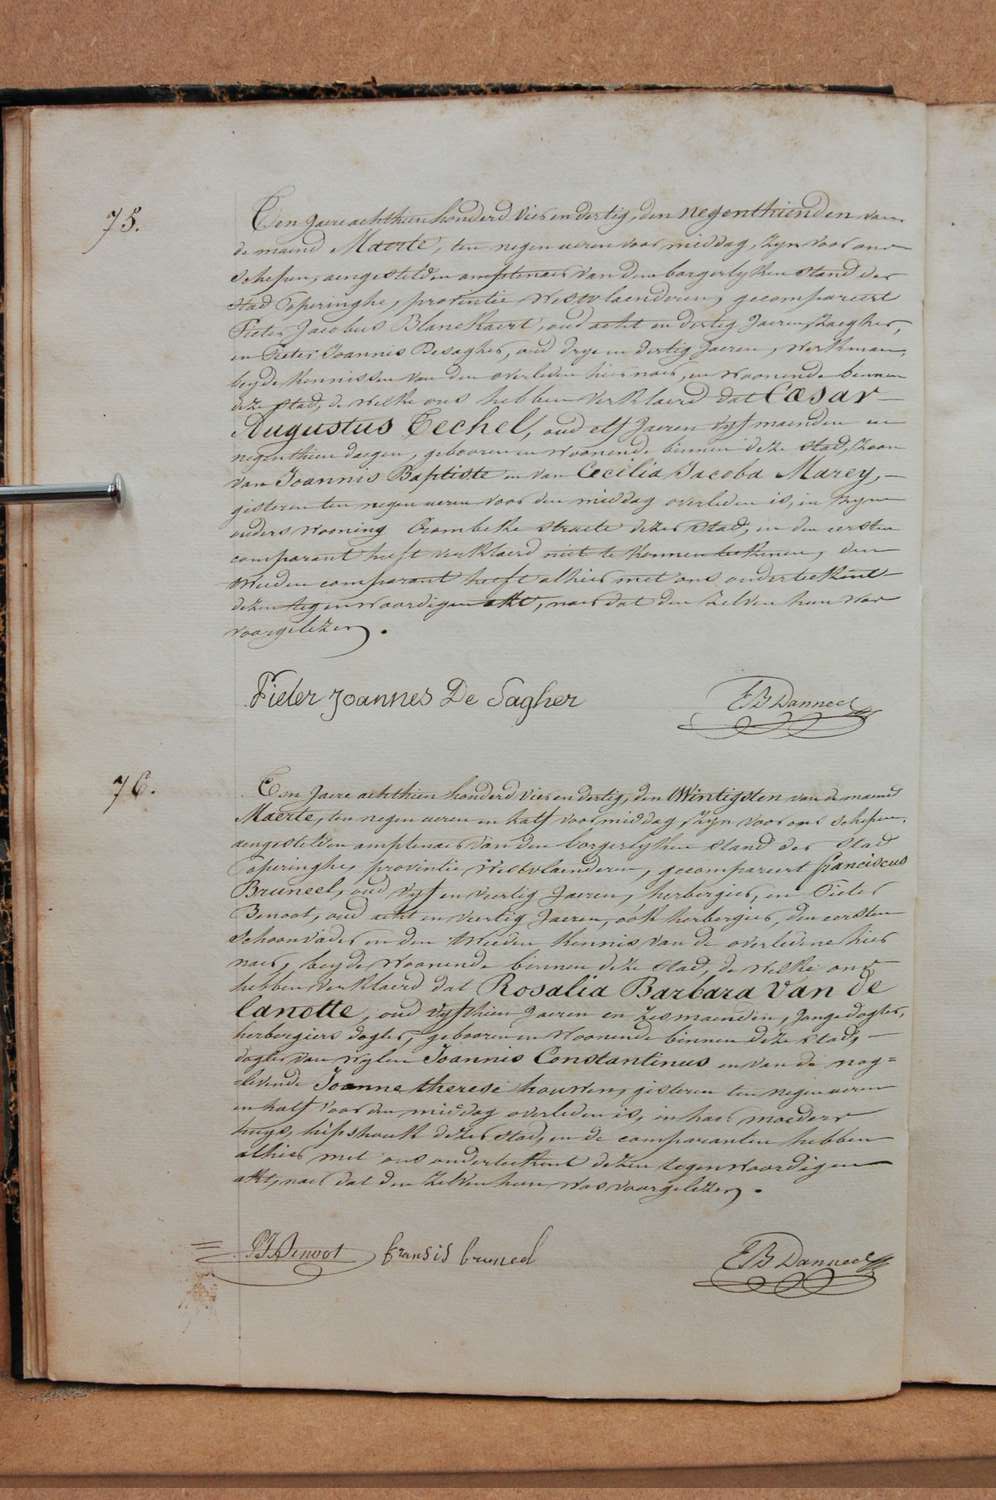 75.
Een jaere achthien honderd vier en dertig, den negenthienden van
de maend Maerte, ten negen ueren voor middag, zyn voor ons
schepen, aengestelden amptenaer van den borgerlyken stand der
stad Poperinghe, provintie Westvlaenderen, gecompareert
Pieter Jacobus Blanckaert, oud acht en dertig Jaeren, Zaegher,
en Pieter Joannis Desagher, oud drye en dertig Jaeren, Werkman,
beyde kennissen van den overleden hier naer, en woonende binnen
deze stad, de welke ons hebben verklaerd dat Cæsar
Augustus Techel, oud elf Jaeren vyf maenden en
negenthien daegen, gebooren en woonende binnen deze stad, zoon
van Joannis Baptiste en van Cecilia Jacoba Marey,
gisteren ten negen ueren voor den middag overleden is, in zyne
ouders wooning Crombeke straete dezer stad, en den eersten
comparant heeft verklaerd niet te konnen teekenen, den
tweeden comparant heeft alhier met ons onderteekent
dezen tegenwoordigen akt, naer dat den zelven hun was
voorgelezen.
Pieter Joannes De Sagher
F B Danneel
76.
Een jaere achthien honderd vier en dertig, den twintigsten van de maend
Maerte, ten negen ueren en half voor middag, zyn voor ons schepen,
aengestelden amptenaer van den borgerlyken stand der stad
Poperinghe, provintie Westvlaenderen, gecompareert franciscus
Bruneel, oud vyf en veertig Jaeren, herbergier, en Pieter
Benoot, oud acht en veertig Jaeren, ook herbergier, den eersten
schoonvader en den tweeden kennis van de overledene hier
naer, beyde woonende binnen deze stad, de welke ons
hebben verklaerd dat Rosalia Barbara Van de
lanotte, oud vyfthien Jaeren en zes maenden, Jonge dogter,
herbergiers dogter, gebooren en woonende binnen deze stad,
dogter van wylen Joannis Constantinus en van de nog=
=levende Joanne therese houwen, gisteren ten negen ueren
en half voor den middag overleden is, in haer moeders
huys, hipshoek dezer stad, en de comparanten hebben
alhier met ons onderteekent dezen tegenwoordigen
akt, naer dat den zelven hun was voorgelezen.
P J Benoot fransis bruneel
F B Danneel